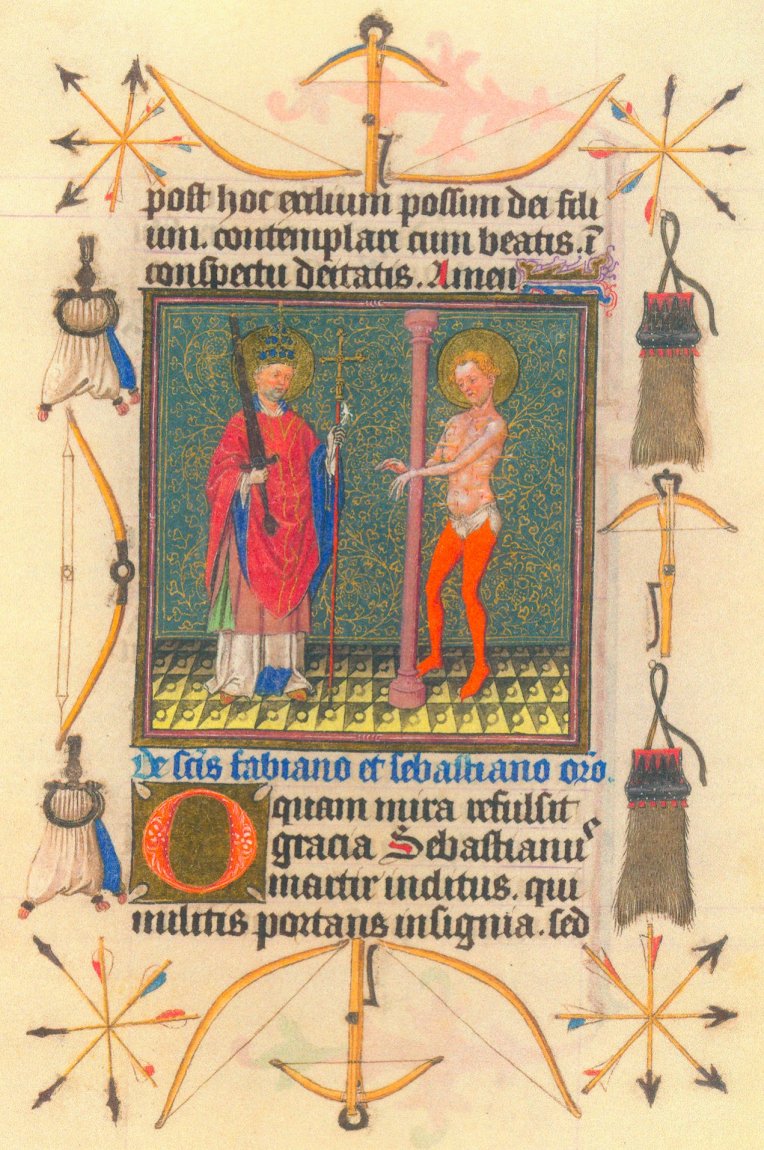 post hoc exilium possim dei fili
um. contemplari cum beatis. ī
conspectu deitatis. Amen
De scīs fabiano et sebastiano orō.
O quam mira refulsit
gracia Sebastianus
martir inclitus. qui
militis portans insignia. sed